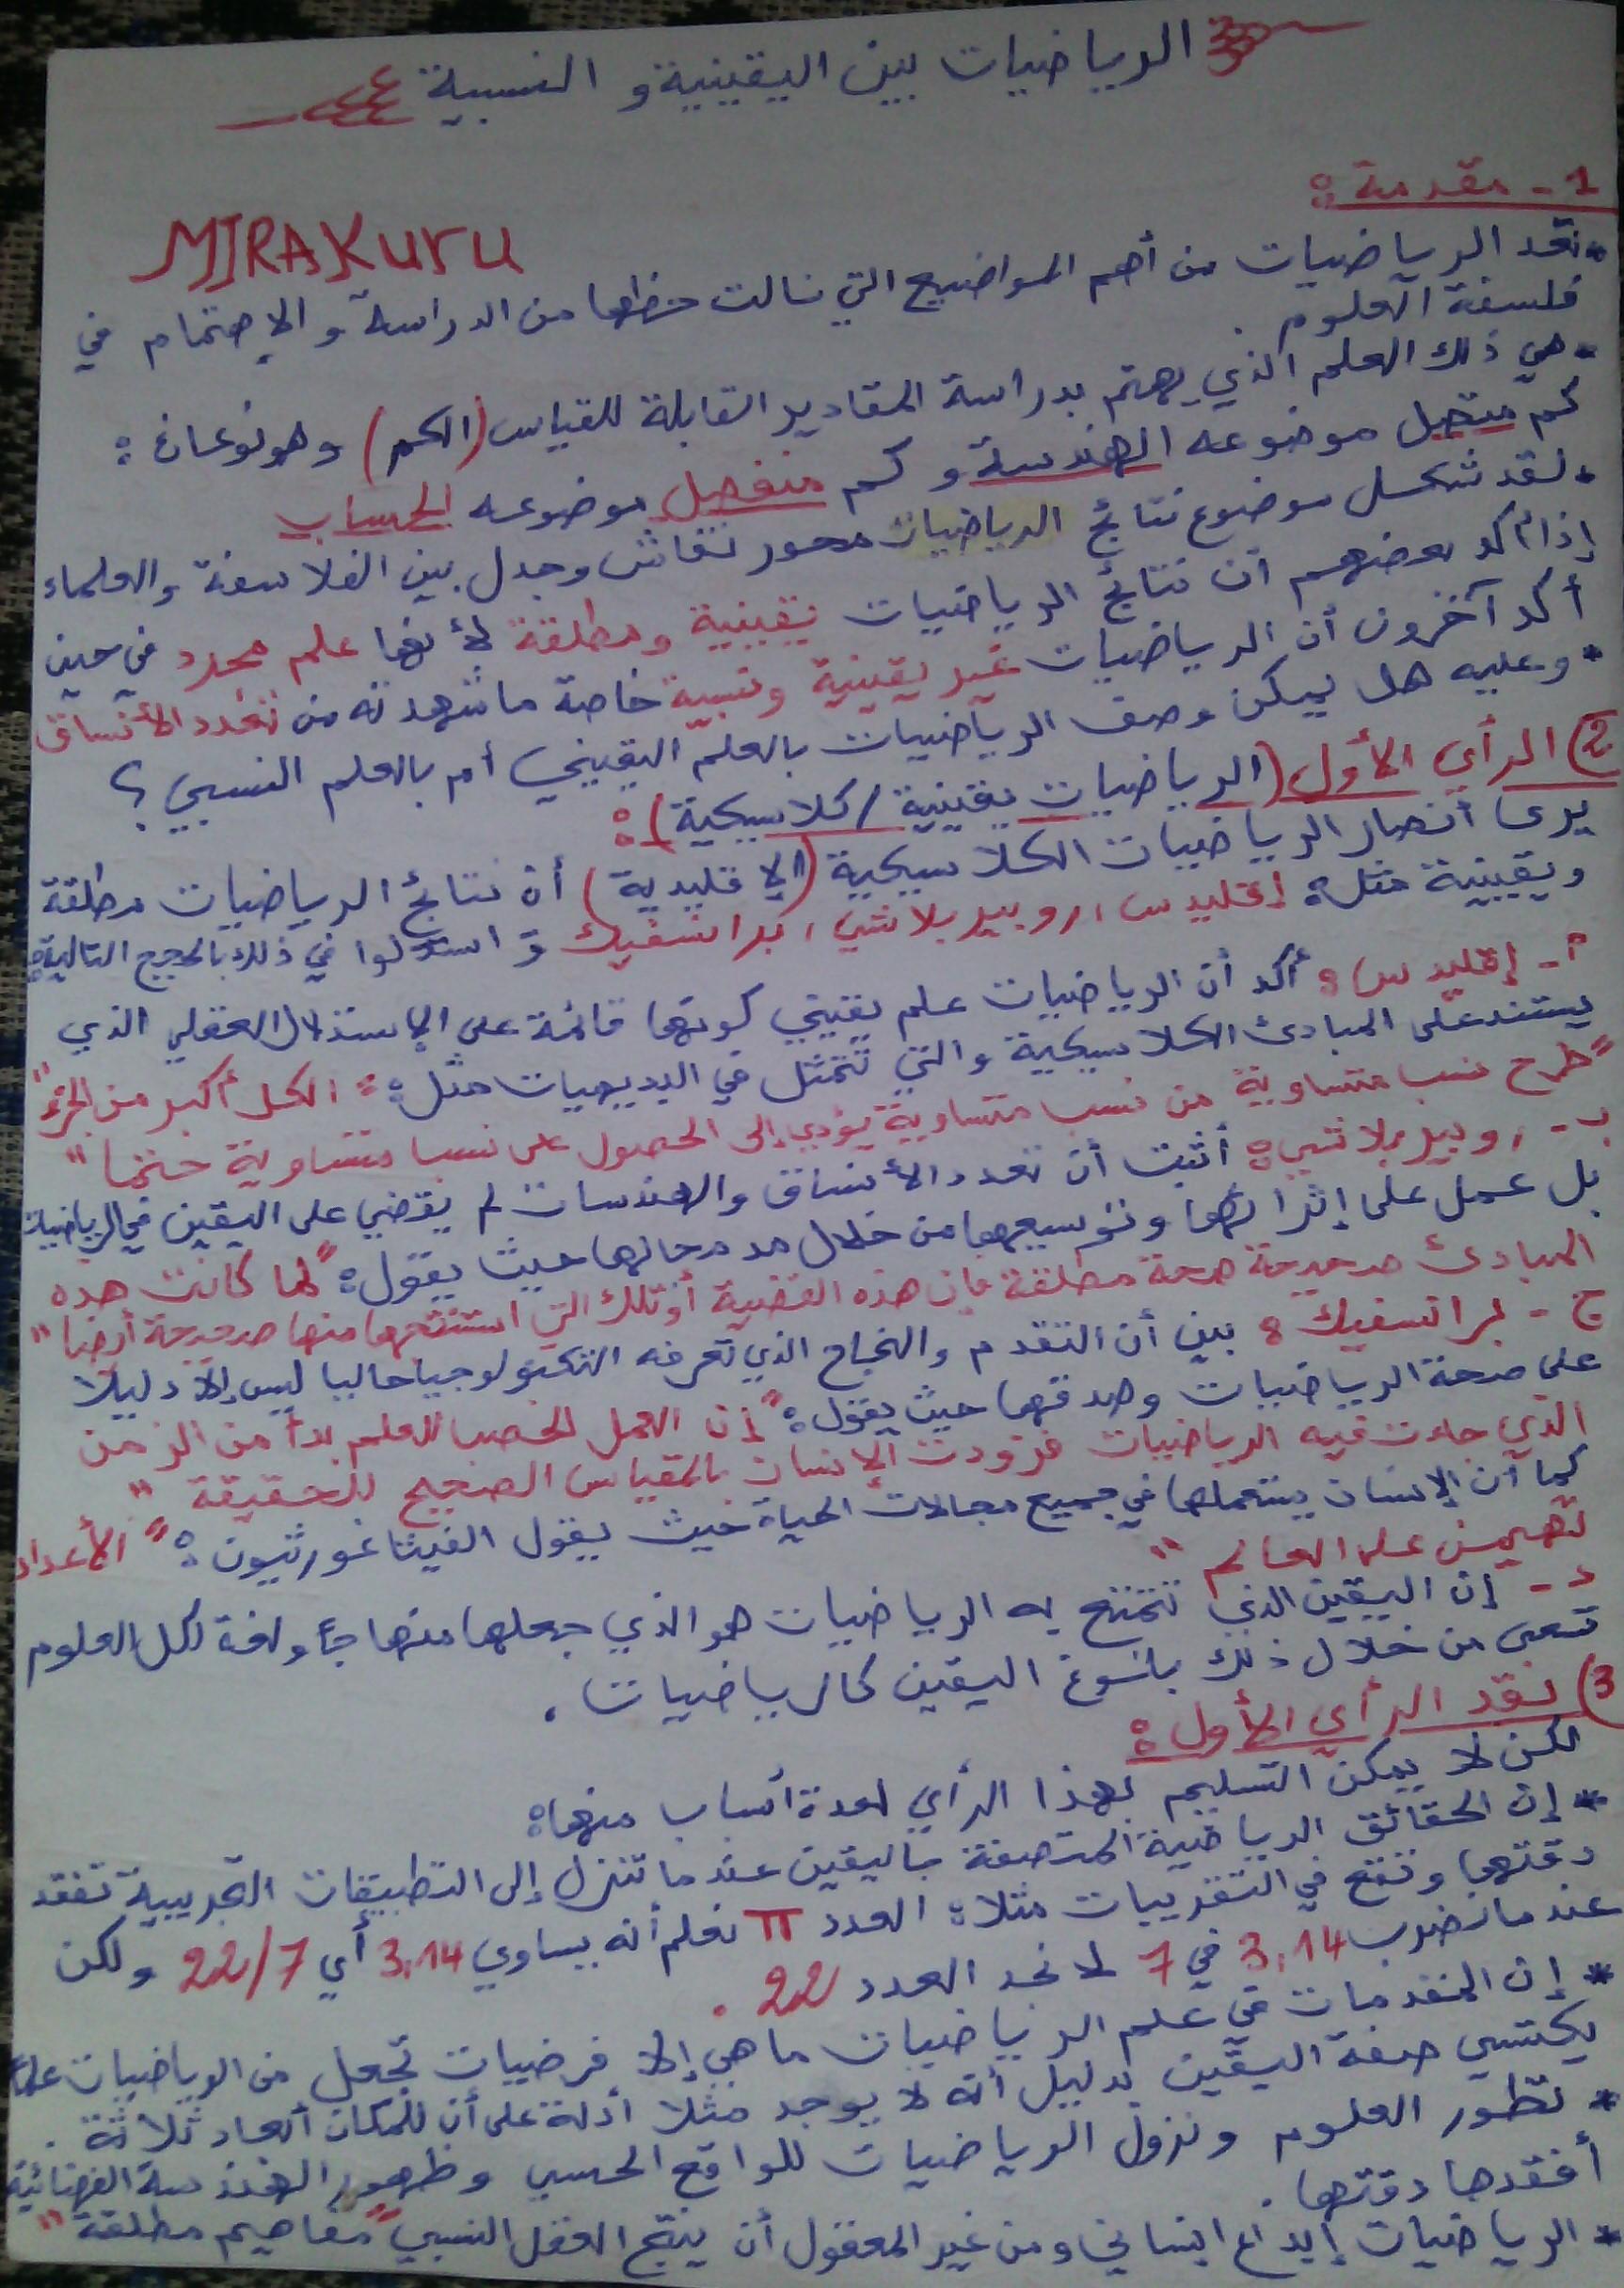 الرياضيات بين اليقينية و النسبية
1 - مقدمة :
MIRAKURU
• تعد الرياضيات من أهم المواضيع التي نالت حظها من الدراسة و الإهتمام في
فلسفة العلوم .
• هي ذلك العلم الذي يهتم بدراسة المقادير القابلة للقياس (الكم) وهو نوعان :
كم متصل موضوعه الهندسة و كم منفصل موضوعه الحساب
• لقد شكل موضوع نتائج الرياضيات محور نقاش وجدل بين الفلاسفة والعلماء
إذ أكد بعضهم أن نتائج الرياضيات يقينية ومطلقة لأنها علم مجرد في حين
أكد آخرون أن الرياضيات غير يقينية ونسبية خاصة ما شهدته من تعدد الأنساق
* وعليه هل يمكن وصف الرياضيات بالعلم اليقيني أم بالعلم النسبي ؟
2) الرأي الأول (الرياضيات يقينية / كلاسيكية) :
يرى أنصار الرياضيات الكلاسيكية (الإقليدية) أن نتائج الرياضيات مطلقة
ويقينية مثل : إقليدس ، روبير بلانشي ، براتشفيك و استدلوا في ذلك بالحجج التالية :
أ - إقليدس : أكد أن الرياضيات علم يقيني كونها قائمة على الإستدلال العقلي الذي
يستند على المبادئ الكلاسيكية والتي تتمثل في البديهيات مثل : " الكل أكبر من الجزء "
" طرح نسب متساوية من نسب متساوية يؤدي إلى الحصول على نسب متساوية حتما "
ب - روبير بلانشي : أثبت أن تعدد الأنساق والهندسات لم يقضي على اليقين في الرياضيات
بل عمل على إثرائها وتوسيعها من خلال مد مجالها حيث يقول : " لما كانت هذه
المبادئ صحيحة صحة مطلقة فإن هذه القضية أو تلك التي استنتجها منها صحيحة أيضا "
ج - براتسفيك : بين أن التقدم والنجاح الذي تعرفه التكنولوجيا حاليا ليس إلا دليلا
على صحة الرياضيات وصدقها حيث يقول : " إن العمل الخصب للعلم بدأ من الزمن
الذي جاءت فيه الرياضيات فزودت الإنسان بالمقياس الصحيح للحقيقة "
كما أن الإنسان يستعملها في جميع مجالات الحياة حيث يقول الفيثاغورثيون : " الأعداد
تهيمن على العالم "
د - إن اليقين الذي تتمتع به الرياضيات هو الذي جعلها منهاجا ولغة لكل العلوم
تسعى من خلال ذلك بلوغ اليقين كالرياضيات .
3) نقد الرأي الأول :
لكن لا يمكن التسليم بهذا الرأي لعدة أسباب منها :
* إن الحقائق الرياضية المتصفة باليقين عندما تنزل إلى التطبيقات التجريبية تفقد
دقتها وتقع في التقريبات مثلا : العدد π نعلم أنه يساوي 3,14 أي 22/7 ولكن
عندما نضرب 3,14 في 7 لا نجد العدد 22 .
* إن المقدمات في علم الرياضيات ما هي إلا فرضيات تجعل من الرياضيات علما
يكتسي صفة اليقين بدليل أنه لا يوجد مثلا أدلة على أن للمكان أبعاد ثلاثة .
* تطور العلوم ونزول الرياضيات للواقع الحسي وظهور الهندسة الفضائية
أفقدها دقتها .
* الرياضيات إبداع انساني ومن غير المعقول أن ينتج العقل النسبي " مفاهيم مطلقة "